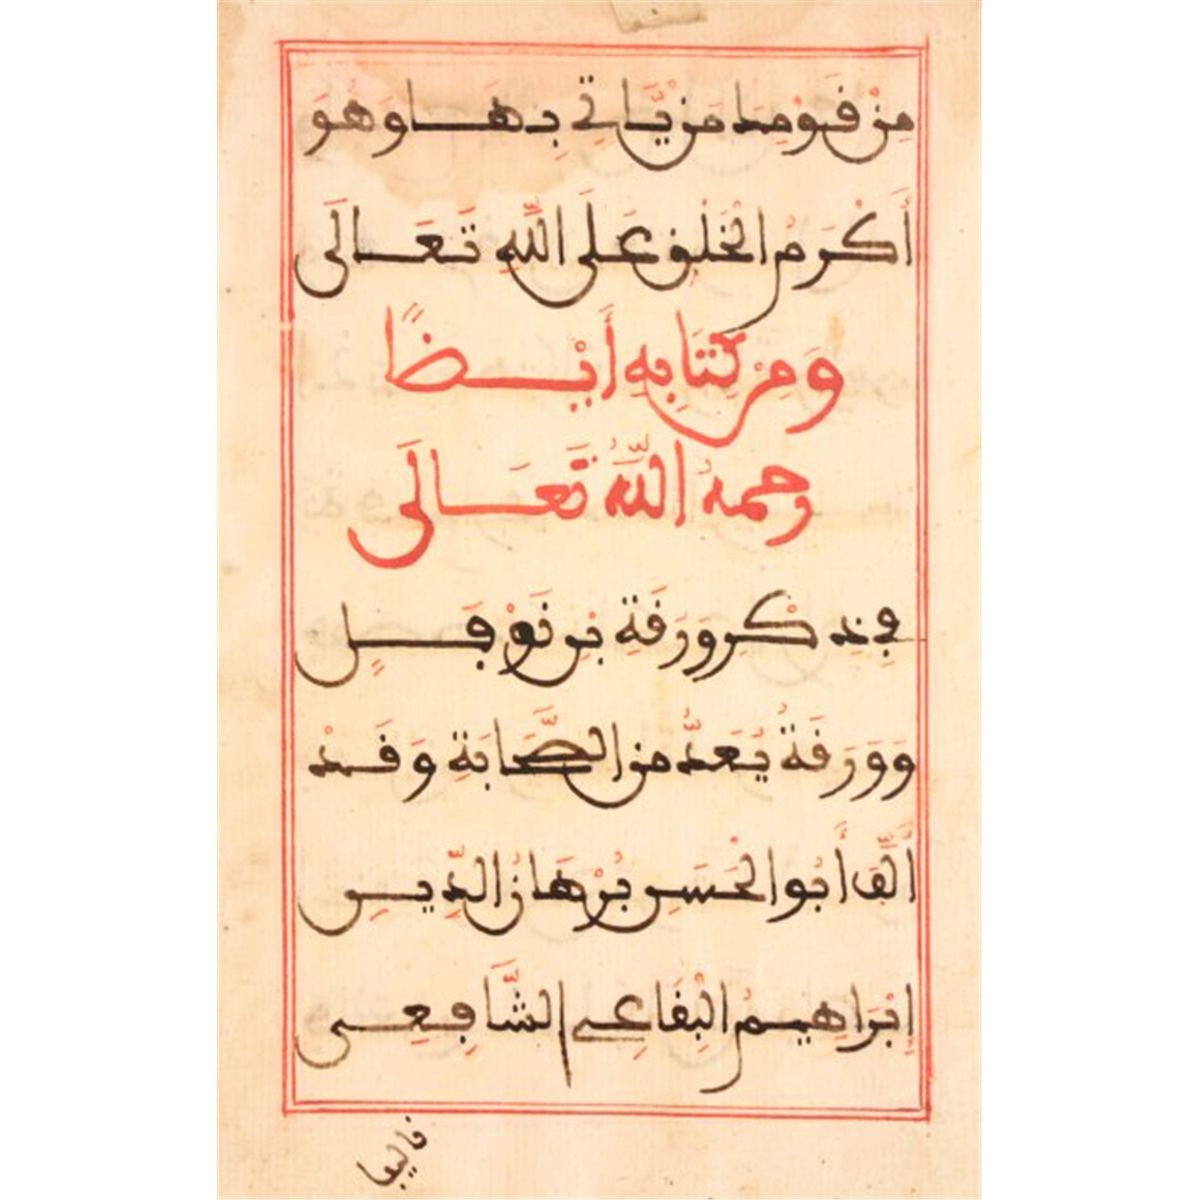 مِنْ قَوْمِهِ مَنْ يَّاتِي بِهَا وَهُوَ
أَكْرَمُ الْخَلْقِ عَلَى اللَّهِ تَعَالَى
وَمِنْ كِتَابِهِ أَيْظًا
رحمهُ اللَّهُ تَعَالَى
فِي ذِكْرِ وَرَقَةَ بْنِ نَوْفَلٍ
وَوَرَقَةُ يُعَدُّ مِنَ الصَّحَابَةِ وَقَدْ
أَلَّفَ أَبُو الْحَسَنِ بُرْهَانُ الدِّينِ
إِبْرَاهِيمُ الْبِقَاعِي الشَّافِعِي
تاليفا